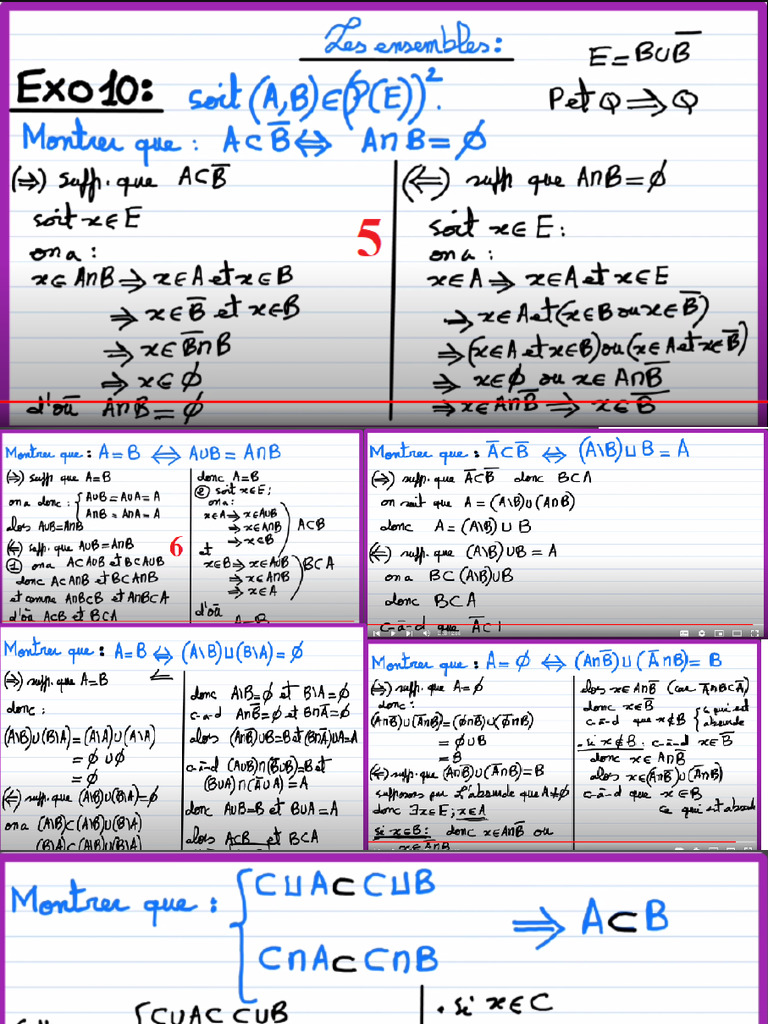 Les ensembles:
E = B∪B̅
Exo10: soit (A,B)∈(P(E))².
P et Q ⟹ Q
Montrer que : A⊂B̅ ⟺ A∩B = ∅
(⇒) supp. que A⊂B̅
soit x∈E
on a :
x∈A∩B ⟹ x∈A et x∈B
⟹ x∈B̅ et x∈B
⟹ x∈B̅∩B
⟹ x∈∅
d'où A∩B = ∅
5
(⇐) supp que A∩B = ∅
soit x∈E :
on a :
x∈A ⟹ x∈A et x∈E
⟹ x∈A et (x∈B ou x∈B̅)
⟹ (x∈A et x∈B) ou (x∈A et x∈B̅)
⟹ x∈∅ ou x∈A∩B̅
⟹ x∈A∩B̅ ⟹ x∈B̅
Montrer que : A = B ⟺ A∪B = A∩B
(⇒) supp que A=B
on a donc : { A∪B = A∪A = A
A∩B = A∩A = A
alors A∪B=A∩B
(⇐) supp. que A∪B = A∩B
① on a A⊂A∪B et B⊂A∪B
donc A⊂A∩B et B⊂A∩B
et comme A∩B⊂B et A∩B⊂A
d'où A⊂B et B⊂A
6
donc A=B
② soit x∈E ;
on a :
x∈A ⟹ x∈A∪B
⟹ x∈A∩B
⟹ x∈B
A⊂B
et
x∈B ⟹ x∈A∪B
⟹ x∈A∩B
⟹ x∈A
B⊂A
d'où
A=B
Montrer que : A̅⊂B̅ ⟺ (A\B)∪B = A
(⇒) supp. que A̅⊂B̅ donc B⊂A
on sait que A = (A\B)∪(A∩B)
donc A = (A\B)∪B
(⇐) supp. que (A\B)∪B = A
on a B⊂(A\B)∪B
donc B⊂A
c-à-d que A̅⊂
Montrer que : A=B ⟺ (A\B)∪(B\A) = ∅
(⇒) supp. que A=B
donc :
(A\B)∪(B\A) = (A\A)∪(A\A)
= ∅∪∅
= ∅
(⇐) supp. que (A\B)∪(B\A)=∅
on a (A\B)⊂(A\B)∪(B\A)
(B\A)⊂(A\B)∪(B\A)
donc A\B=∅ et B\A=∅
c-à-d A∩B̅=∅ et B∩A̅=∅
alors (A∩B̅)∪B=B et (B∩A̅)∪A=A
c-à-d (A∪B)∩(B̅∪B)=B et
(B∪A)∩(A̅∪A) = A
donc A∪B=B et B∪A=A
alors A⊂B et B⊂A
Montrer que : A=∅ ⟺ (A∩B̅)∪(A̅∩B) = B
(⇒) supp. que A=∅
donc :
(A∩B̅)∪(A̅∩B) = (∅∩B̅)∪(∅̅∩B)
= ∅∪B
= B
(⇐) supp. que (A∩B̅)∪(A̅∩B)=B
supposons par l'absurde que A≠∅
donc ∃x∈E ; x∈A
si x∈B : donc x∈A∩B̅ ou
x∈A̅∩B
alors x∈A∩B̅ (car A̅∩B⊂A̅)
donc x∈B̅
c-à-d que x∉B
ce qui est
absurde
. si x∉B : c-à-d x∈B̅
donc x∈A∩B̅
alors x∈(A∩B̅)∪(A̅∩B)
c-à-d que x∈B
ce qui est absurde
Montrer que : { C∪A⊂C∪B
C∩A⊂C∩B
⟹ A⊂B
{C∪A⊂C∪B
. si x∈C